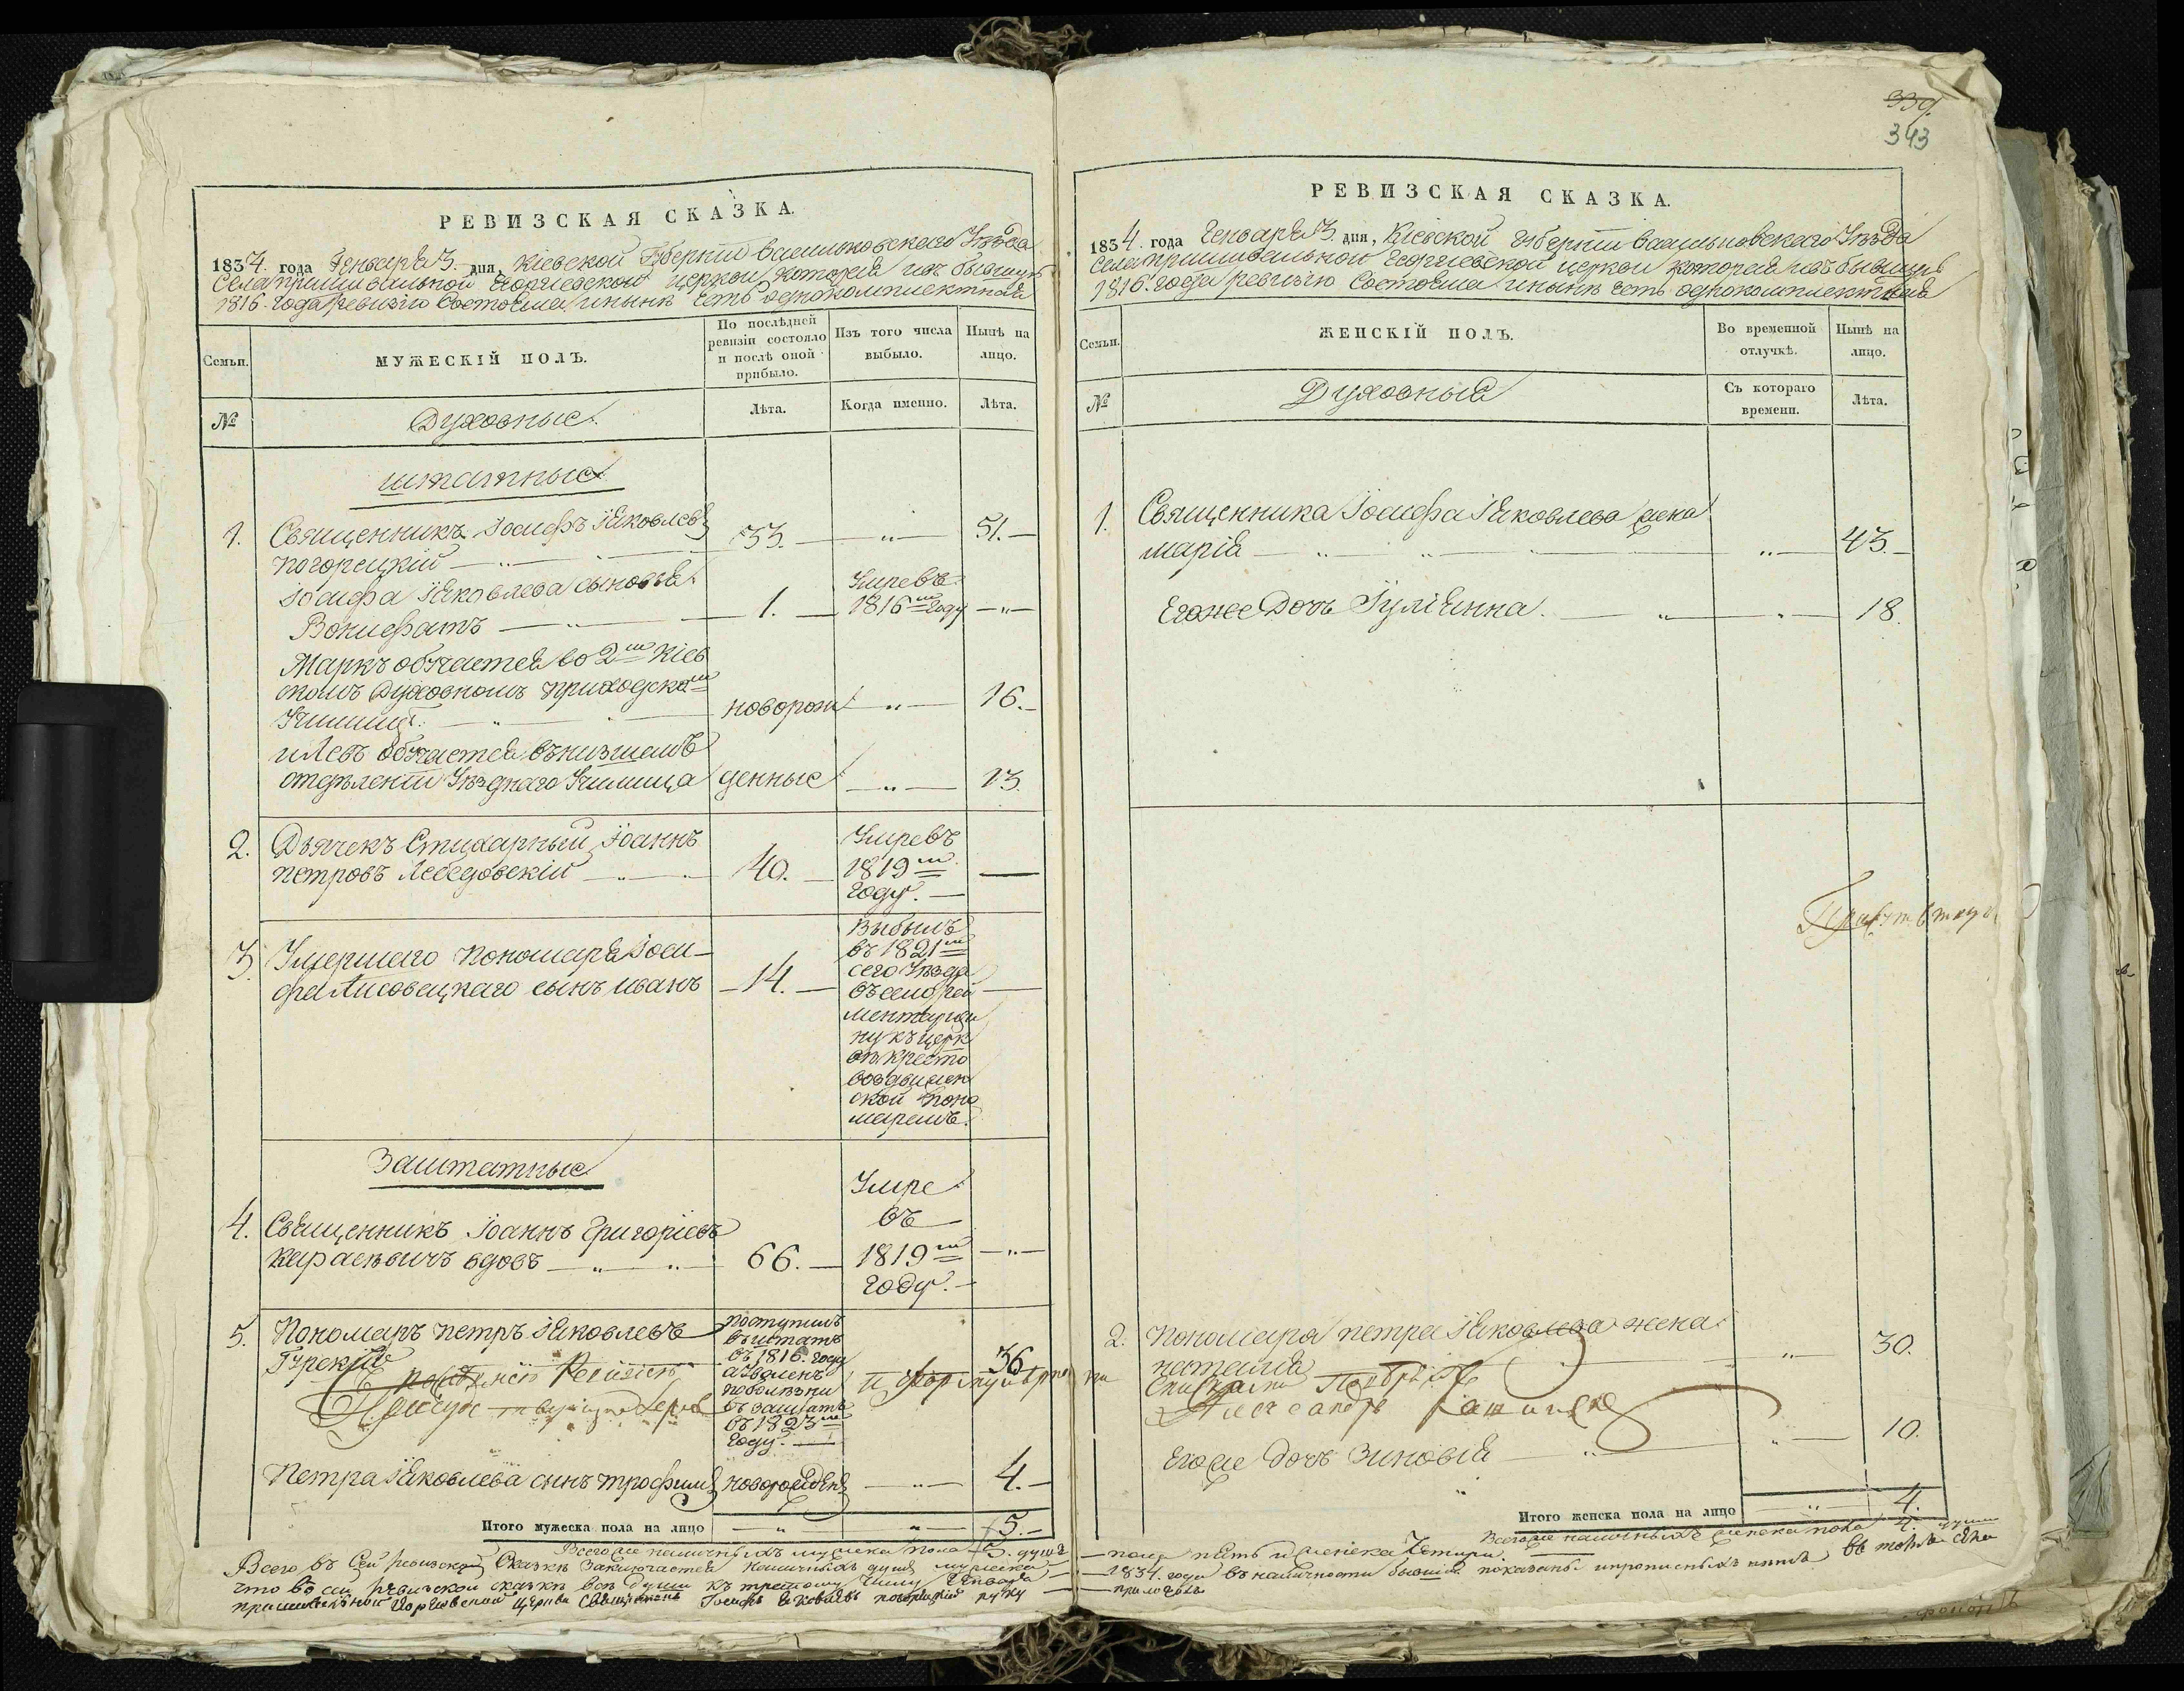 339.
343
РЕВИЗСКАЯ СКАЗКА.
1834. года Генваря 3. дня, Кіевской Губерніи Васильковскаго Уѣзда
Села пришивальной Георгіевской церкви которая въ бывшую
1816. года ревизію состояла и нынѣ есть однокомплектная
Семьи.
МУЖЕСКІЙ ПОЛЪ.
По послѣдней ревизіи состояло и послѣ оной прибыло.
Изъ того числа выбыло.
Нынѣ на лицо.
№
Духовные.
Лѣта.
Когда именно.
Лѣта.
штатные
1. Священникъ Іосифъ Іяковлевъ
Погорецкій 33. — „ — 51.—
Іосифа Іяковлева сыновья.
Вонифатъ 1. Умре въ 1816м году — „ —
Маркъ обучается во 2м Кіев
скомъ Духовномъ приходском
Училищѣ. новорож — „ — 16.
и Левъ обучается въ низшемъ
отдѣленіи Уѣзднаго Училища денные — „ — 13.
2. Дьячекъ Стихарный Іоаннъ
Петровъ Лебедовскій 40. Умре въ 1819м году. —
3. Умершаго Пономаря Іоси-
фа Лисовецкаго сынъ Иванъ — 14. —
Выбылъ
въ 1821м
сего Уѣзда
въ село рей
ментарщи
ну къ церк
ви кресто
воздвижен
ской поно
маремъ.
Заштатные
4. Священникъ Іоаннъ Григоріевъ
вдовъ 66. Умре въ 1819м году. — „ —
5. Пономарь Петръ Іяковлевъ
Гурскій
поступилъ
въ штатъ
въ 1816. году
а уволенъ
по болѣзни
въ заштатъ
въ 1823м
году. —
36
Петра Іяковлева сынъ Трофимъ новорожденъ — „ — 4.—
Итого мужеска пола на лицо — „ — „ — 5.—
Всего же наличныхъ мужеска пола 5. душъ
Всего въ сей ревизской сказкѣ заключается наличныхъ душъ мужеска —
что во сей ревизской сказкѣ всѣ души къ третьему числу Генваря
пришивальной Георгіевской церкви священникъ Іосифъ Іяковлевъ погорецкій руку
РЕВИЗСКАЯ СКАЗКА.
1834. года Генваря 3. дня, Кіевской Губерніи Васильковскаго Уѣзда
Села пришивальной Георгіевской церкви которая въ бывшую
1816. года ревизію состояла и нынѣ есть однокомплектная
Семьи.
ЖЕНСКІЙ ПОЛЪ.
Во временной отлучкѣ.
Нынѣ на лицо.
№
Духовныя
Съ котораго времени.
Лѣта.
1. Священника Іосифа Іяковлева жена
Марія — „ — 43.—
Его же Дочь Іуліянна. — „ — 18.
2. Пономаря Петра Іяковлева жена
Наталія — „ — 30.
Его же дочь Зиновія — „ — 10.
Итого женска пола на лицо — „ — 4.
Всего же наличныхъ женска пола 4. души
— пола пять и женска Четыри. —
— 1834. года въ наличности бывшія показаны и прописныхъ нѣтъ въ томъ села
— приложилъ